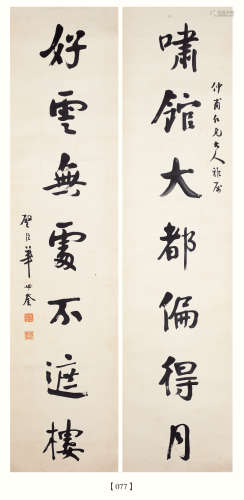 仲甫仁兄大人雅属
啸馆大都偏得月
好雲無處不遮樓
壁臣華世奎
【077】